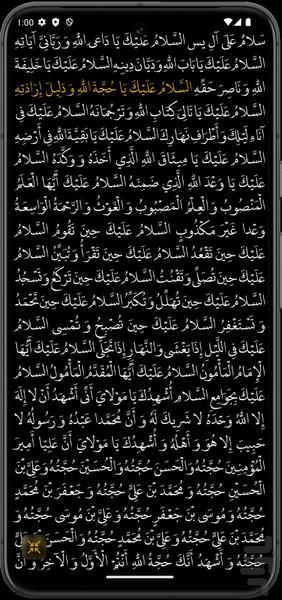 1:00
سَلَامٌ عَلَىٰ آلِ يس السَّلَامُ عَلَيْكَ يَا دَاعِيَ اللّٰهِ وَ رَبَّانِيَّ آيَاتِهِ
السَّلَامُ عَلَيْكَ يَا بَابَ اللّٰهِ وَ دَيَّانَ دِينِهِ السَّلَامُ عَلَيْكَ يَا خَلِيفَةَ
اللّٰهِ وَ نَاصِرَ حَقِّهِ السَّلَامُ عَلَيْكَ يَا حُجَّةَ اللّٰهِ وَ دَلِيلَ إِرَادَتِهِ
السَّلَامُ عَلَيْكَ يَا تَالِيَ كِتَابِ اللّٰهِ وَ تَرْجُمَانَهُ السَّلَامُ عَلَيْكَ فِي
آنَاءِ لَيْلِكَ وَ أَطْرَافِ نَهَارِكَ السَّلَامُ عَلَيْكَ يَا بَقِيَّةَ اللّٰهِ فِي أَرْضِهِ
السَّلَامُ عَلَيْكَ يَا مِيثَاقَ اللّٰهِ الَّذِي أَخَذَهُ وَ وَكَّدَهُ السَّلَامُ
عَلَيْكَ يَا وَعْدَ اللّٰهِ الَّذِي ضَمِنَهُ السَّلَامُ عَلَيْكَ أَيُّهَا الْعَلَمُ
الْمَنْصُوبُ وَ الْعِلْمُ الْمَصْبُوبُ وَ الْغَوْثُ وَ الرَّحْمَةُ الْوَاسِعَةُ
وَعْدا غَيْرَ مَكْذُوبٍ السَّلَامُ عَلَيْكَ حِينَ تَقُومُ السَّلَامُ
عَلَيْكَ حِينَ تَقْعُدُ السَّلَامُ عَلَيْكَ حِينَ تَقْرَأُ وَ تُبَيِّنُ السَّلَامُ
عَلَيْكَ حِينَ تُصَلِّي وَ تَقْنُتُ السَّلَامُ عَلَيْكَ حِينَ تَرْكَعُ وَ تَسْجُدُ
السَّلَامُ عَلَيْكَ حِينَ تُهَلِّلُ وَ تُكَبِّرُ السَّلَامُ عَلَيْكَ حِينَ تَحْمَدُ
وَ تَسْتَغْفِرُ السَّلَامُ عَلَيْكَ حِينَ تُصْبِحُ وَ تُمْسِي السَّلَامُ
عَلَيْكَ فِي اللَّيْلِ إِذَا يَغْشَى وَ النَّهَارِ إِذَا تَجَلَّى السَّلَامُ عَلَيْكَ أَيُّهَا
الْإِمَامُ الْمَأْمُونُ السَّلَامُ عَلَيْكَ أَيُّهَا الْمُقَدَّمُ الْمَأْمُولُ السَّلَامُ
عَلَيْكَ بِجَوَامِعِ السَّلَامِ أُشْهِدُكَ يَا مَوْلَايَ أَنِّي أَشْهَدُ أَنْ لَا إِلَهَ
إِلَّا اللّٰهُ وَحْدَهُ لَا شَرِيكَ لَهُ وَ أَنَّ مُحَمَّدا عَبْدُهُ وَ رَسُولُهُ لَا
حَبِيبَ إِلَّا هُوَ وَ أَهْلُهُ وَ أُشْهِدُكَ يَا مَوْلَايَ أَنَّ عَلِيّا أَمِيرَ
الْمُؤْمِنِينَ حُجَّتُهُ وَ الْحَسَنَ حُجَّتُهُ وَ الْحُسَيْنَ حُجَّتُهُ وَ عَلِيَّ بْنَ
الْحُسَيْنِ حُجَّتُهُ وَ مُحَمَّدَ بْنَ عَلِيٍّ حُجَّتُهُ وَ جَعْفَرَ بْنَ مُحَمَّدٍ
حُجَّتُهُ وَ مُوسَى بْنَ جَعْفَرٍ حُجَّتُهُ وَ عَلِيَّ بْنَ مُوسَى حُجَّتُهُ وَ مُحَمَّدَ
بْنَ عَلِيٍّ حُجَّتُهُ وَ عَلِيَّ بْنَ مُحَمَّدٍ حُجَّتُهُ وَ الْحَسَنَ بْنَ عَلِيٍّ
حُجَّتُهُ وَ أَشْهَدُ أَنَّكَ حُجَّةُ اللّٰهِ أَنْتُمُ الْأَوَّلُ وَ الْآخِرُ وَ أَنَّ